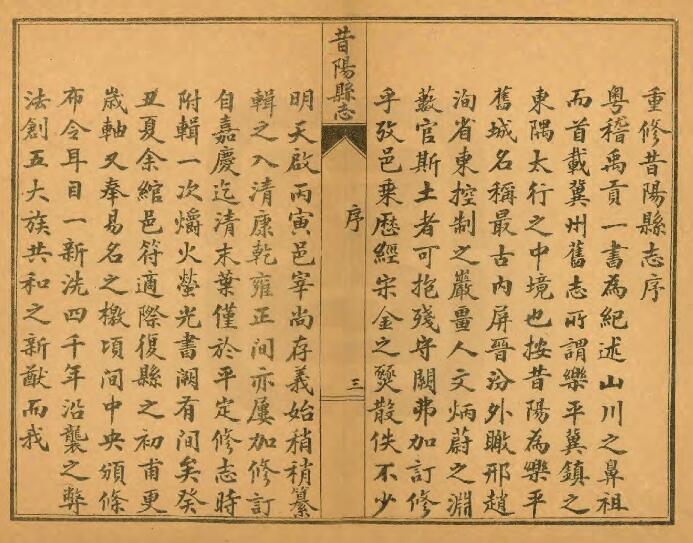 重修昔陽縣志序
粵稽禹貢一書為紀述山川之鼻祖
而首載冀州舊志所謂樂平冀鎮之
東隅太行之中境也按昔陽為樂平
舊城名稱最古內屏晉汾外瞰邢趙
洵省東控制之巖畺人文炳蔚之淵
藪官斯土者可抱殘守闕弗加訂修
乎攷邑乗歷經宋金之爕散佚不少
昔陽縣志
序
三
明天啟丙寅邑宰尚存義始稍稍纂
輯之入清康乾雍正間亦屢加修訂
自嘉慶迄清末葉僅於平定修志時
附輯一次爝火螢光書闕有間矣癸
丑夏余綰邑符適際復縣之初甫更
歲軸又奉易名之檄頃間中央頒條
布令耳目一新洗四千年沿襲之弊
法創五大族共和之新猷而我